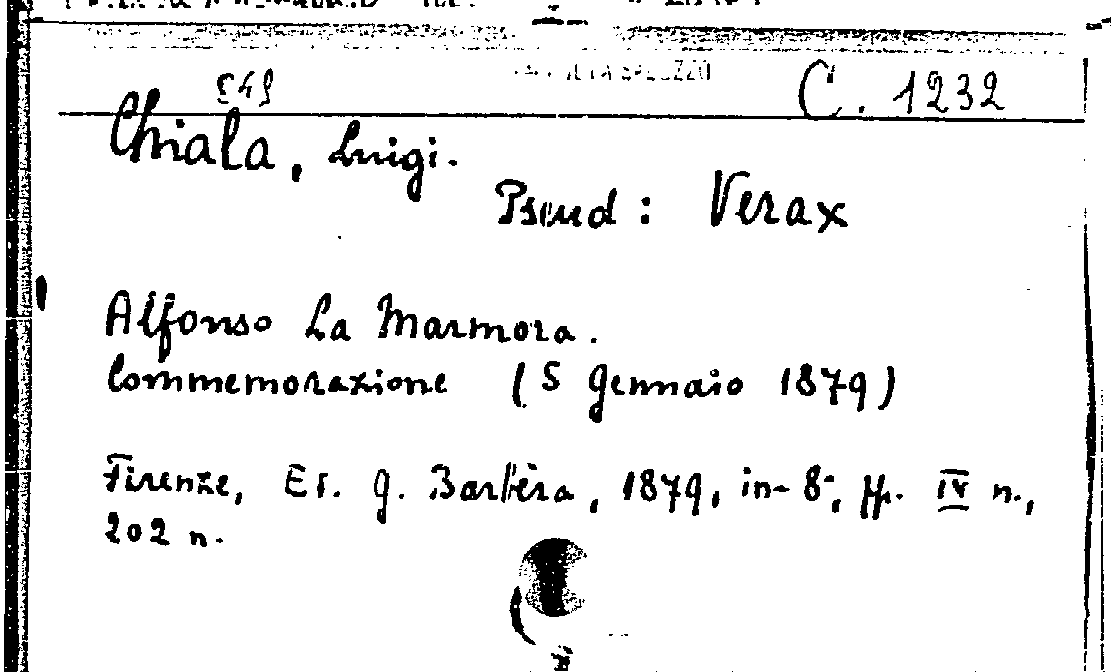 C. 1232
Chiala, Luigi.
Pseud : Verax
Alfonso La Marmora.
Commemorazione (5 Gennaio 1879)
Firenze, G. Barbèra, 1879, in-8°, pp. IV n.,
202 n.